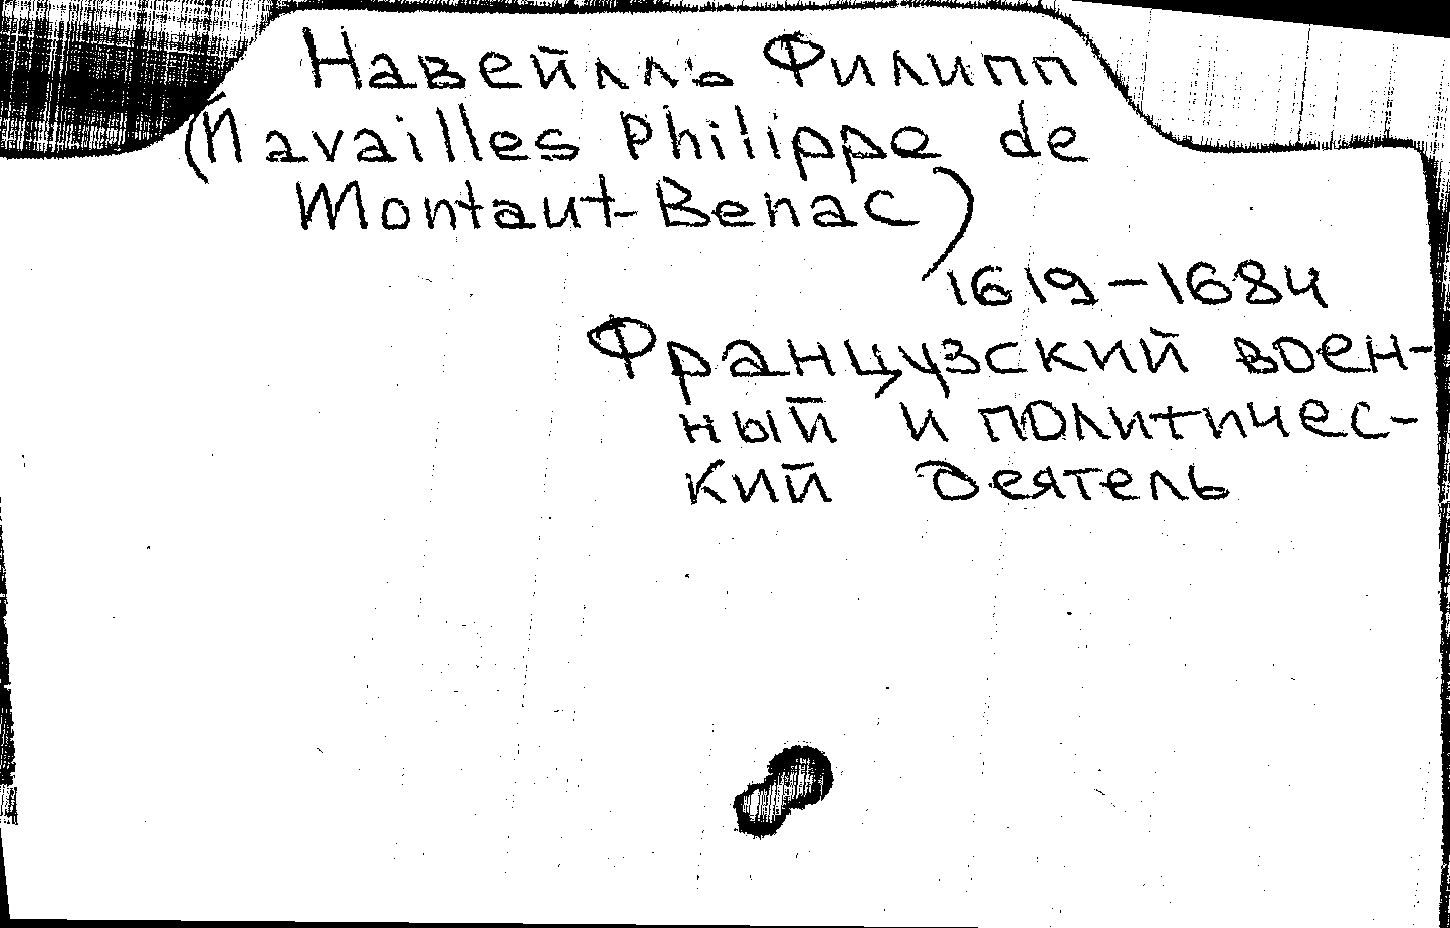 Навейлль Филипп
(Navailles Philippe de
Montaut-Benac)
1619-1684
Французский воен-
ный и политичес-
кий деятель